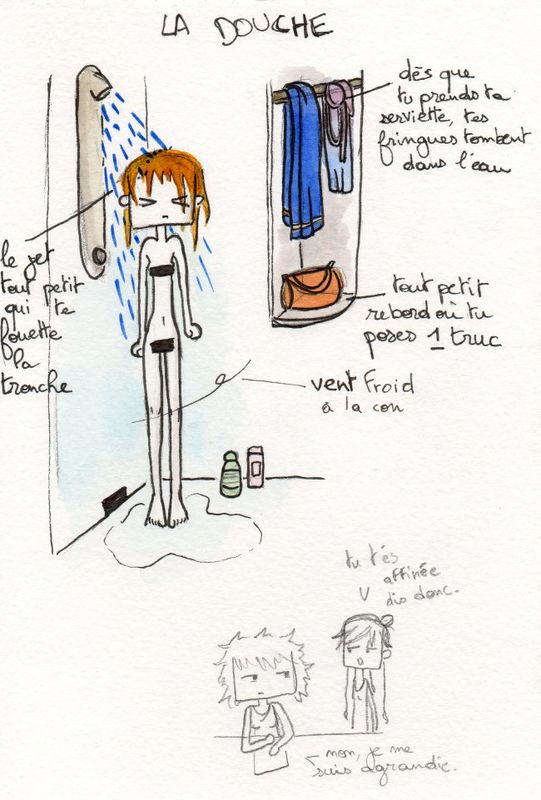 LA DOUCHE
dès que
tu prends ta
serviette, tes
fringues tombent
dans l'eau
le jet
tout petit
qui te
fouette
la
tronche
tout petit
rebord où tu
poses 1 truc
vent froid
à la con
tu t'es
affinée
dis donc.
non, je me
suis agrandie.